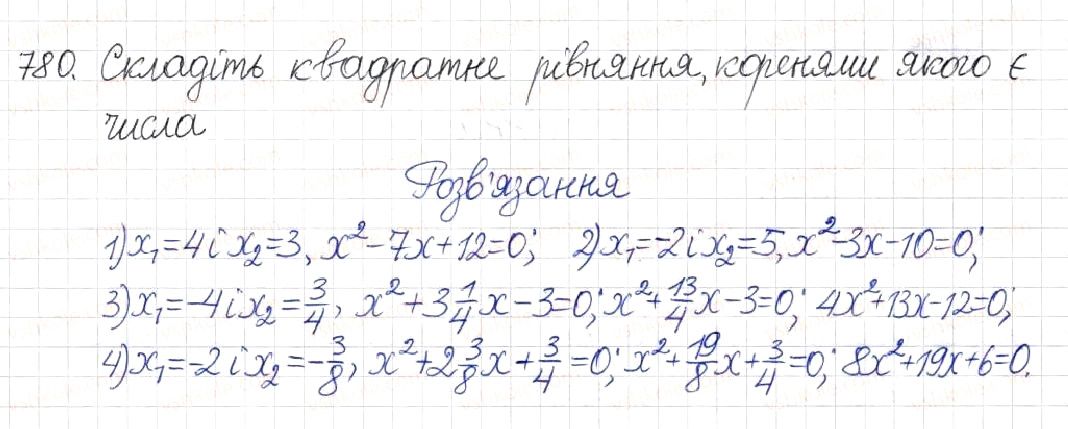 780. Складіть квадратне рівняння, коренями якого є
числа
Розв'язання
1) x₁=4 і x₂=3, x²-7x+12=0; 2) x₁=-2 і x₂=5, x²-3x-10=0;
3) x₁=-4 і x₂=3/4, x²+3 1/4 x-3=0; x²+13/4 x-3=0; 4x²+13x-12=0;
4) x₁=-2 і x₂=-3/8, x²+2 3/8 x+3/4=0; x²+19/8 x+3/4=0; 8x²+19x+6=0.